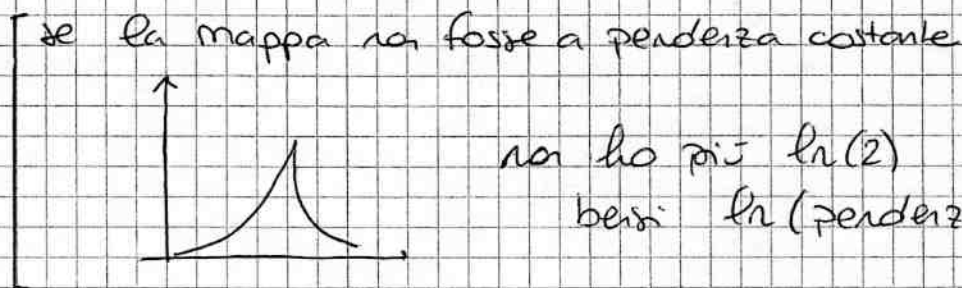 se la mappa non fosse a pendenza costante
non ho più ln(2)
bensì ln(pendenz